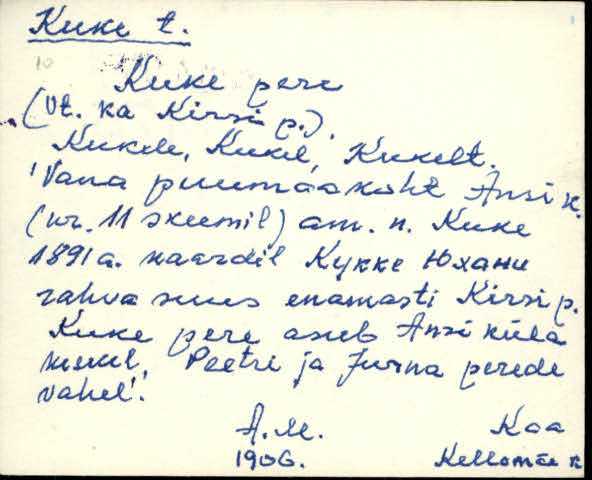 Kuke t.
10
Kuke pere
(Vt. ka Kirsi p.).
Kukele, Kukel, Kukelt.
'Vana puumäakoht Ansi k.
(nr. 11 skeemil) am. n. Kuke
1891 a. kaardil Кукке Юхани
rahva suus enamasti Kirsi p.
Kuke pere aseb Ansi küla
Peetri ja Jurna perede
vahel'.
A. M. Kaa
1906. Kellamäe k